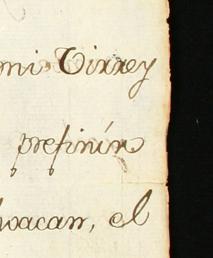 mi Virrey
prefinir
hoacan, el